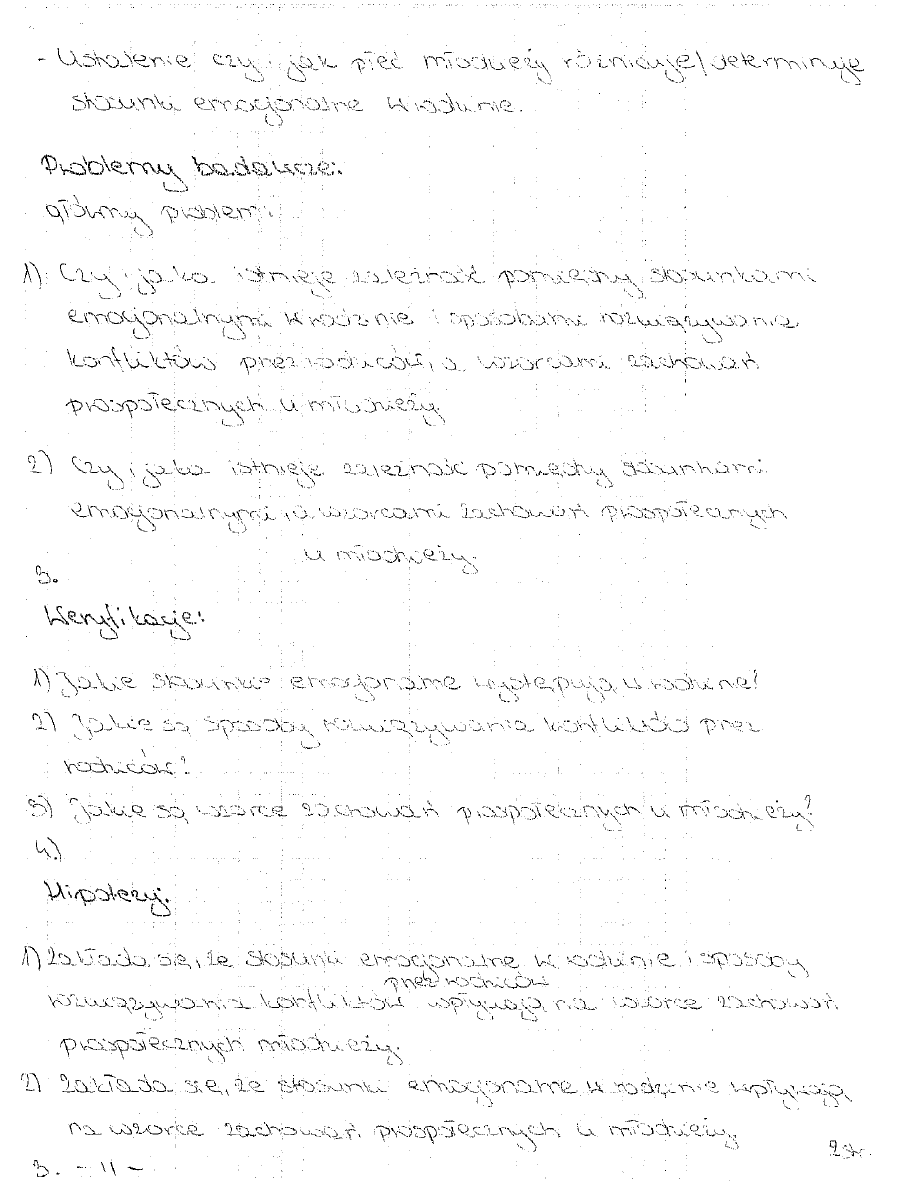 - Ustalenie czy i jak płeć młodzieży różnicuje/determinuje
stosunki emocjonalne w rodzinie.
Problemy badawcze:
główny problem:
1) Czy i jaka istnieje zależność pomiędzy stosunkami
emocjonalnymi w rodzinie i sposobami rozwiązywania
konfliktów przez rodziców, a wzorcami zachowań
prospołecznych u młodzieży.
2) Czy i jaka istnieje zależność pomiędzy stosunkami
emocjonalnymi, a wzorcami zachowań prospołecznych
u młodzieży.
3.
Weryfikacje:
1) Jakie stosunki emocjonalne występują w rodzinie?
2) Jakie są sposoby rozwiązywania konfliktów przez
rodziców?
3) Jakie są wzorce zachowań prospołecznych u młodzieży?
4.)
Hipotezy:
1) Zakłada się, że stosunki emocjonalne w rodzinie i sposoby
przez rodziców
rozwiązywania konfliktów wpływają na wzorce zachowań
prospołecznych młodzieży.
2) Zakłada się, że stosunki emocjonalne w rodzinie wpływają
na wzorce zachowań prospołecznych u młodzieży.
3. - 11 -
2 str.